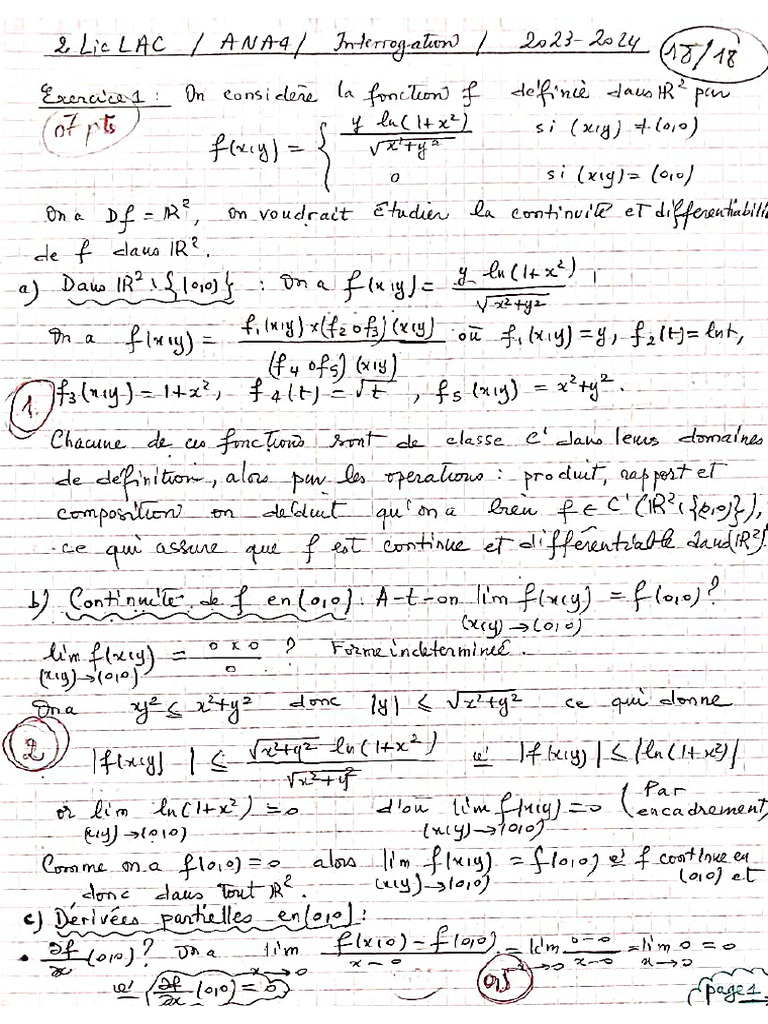 2 Lic LAC / ANA4 / Interrogation / 2023-2024
18/18
Exercice 1 : On considère la fonction f définie dans ℝ² par
07 pts
f(x,y) = { y ln(1+x²) / √(x²+y²) si (x,y) ≠ (0,0)
0 si (x,y) = (0,0)
On a Df = ℝ², on voudrait étudier la continuité et différentiabili
de f dans ℝ².
a) Dans ℝ² \ {(0,0)} : On a f(x,y) = y ln(1+x²) / √(x²+y²) ,
On a f(x,y) = f₁(x,y) × (f₂ o f₃)(x,y) / (f₄ o f₅)(x,y) où f₁(x,y) = y, f₂(t) = ln t,
1. f₃(x,y) = 1+x², f₄(t) = √t , f₅(x,y) = x²+y².
Chacune de ces fonctions sont de classe C' dans leurs domaines
de définition, alors par les opérations : produit, rapport et
composition on déduit qu'on a bien f ∈ C'(ℝ² \ {(0,0)}),
ce qui assure que f est continue et différentiable dans
b) Continuité de f en (0,0) : A-t-on lim f(x,y) = f(0,0) ?
(x,y)→(0,0)
lim f(x,y) = 0 × 0 / 0 ? Forme indéterminée.
(x,y)→(0,0)
On a y² ≤ x²+y² donc |y| ≤ √(x²+y²) ce qui donne
2 |f(x,y)| ≤ √(x²+y²) ln(1+x²) / √(x²+y²) |f(x,y)| ≤ |ln(1+x²)|
or lim ln(1+x²) = 0 d'où lim f(x,y) = 0 (Par encadrement)
(x,y)→(0,0) (x,y)→(0,0)
Comme on a f(0,0) = 0 alors lim f(x,y) = f(0,0) f continue en
(x,y)→(0,0) (0,0) et
donc dans tout ℝ².
c) Dérivées partielles en (0,0) :
• ∂f/∂x (0,0) ? On a lim f(x,0) − f(0,0) / x−0 = lim 0−0 / x−0 = lim 0 = 0
x→0 x→0 x→0
∂f/∂x (0,0) = 0 0,5
page 1